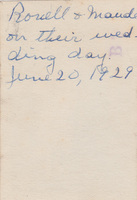 Rowell & Maude
on their wed-
ding day.
June 20, 1929